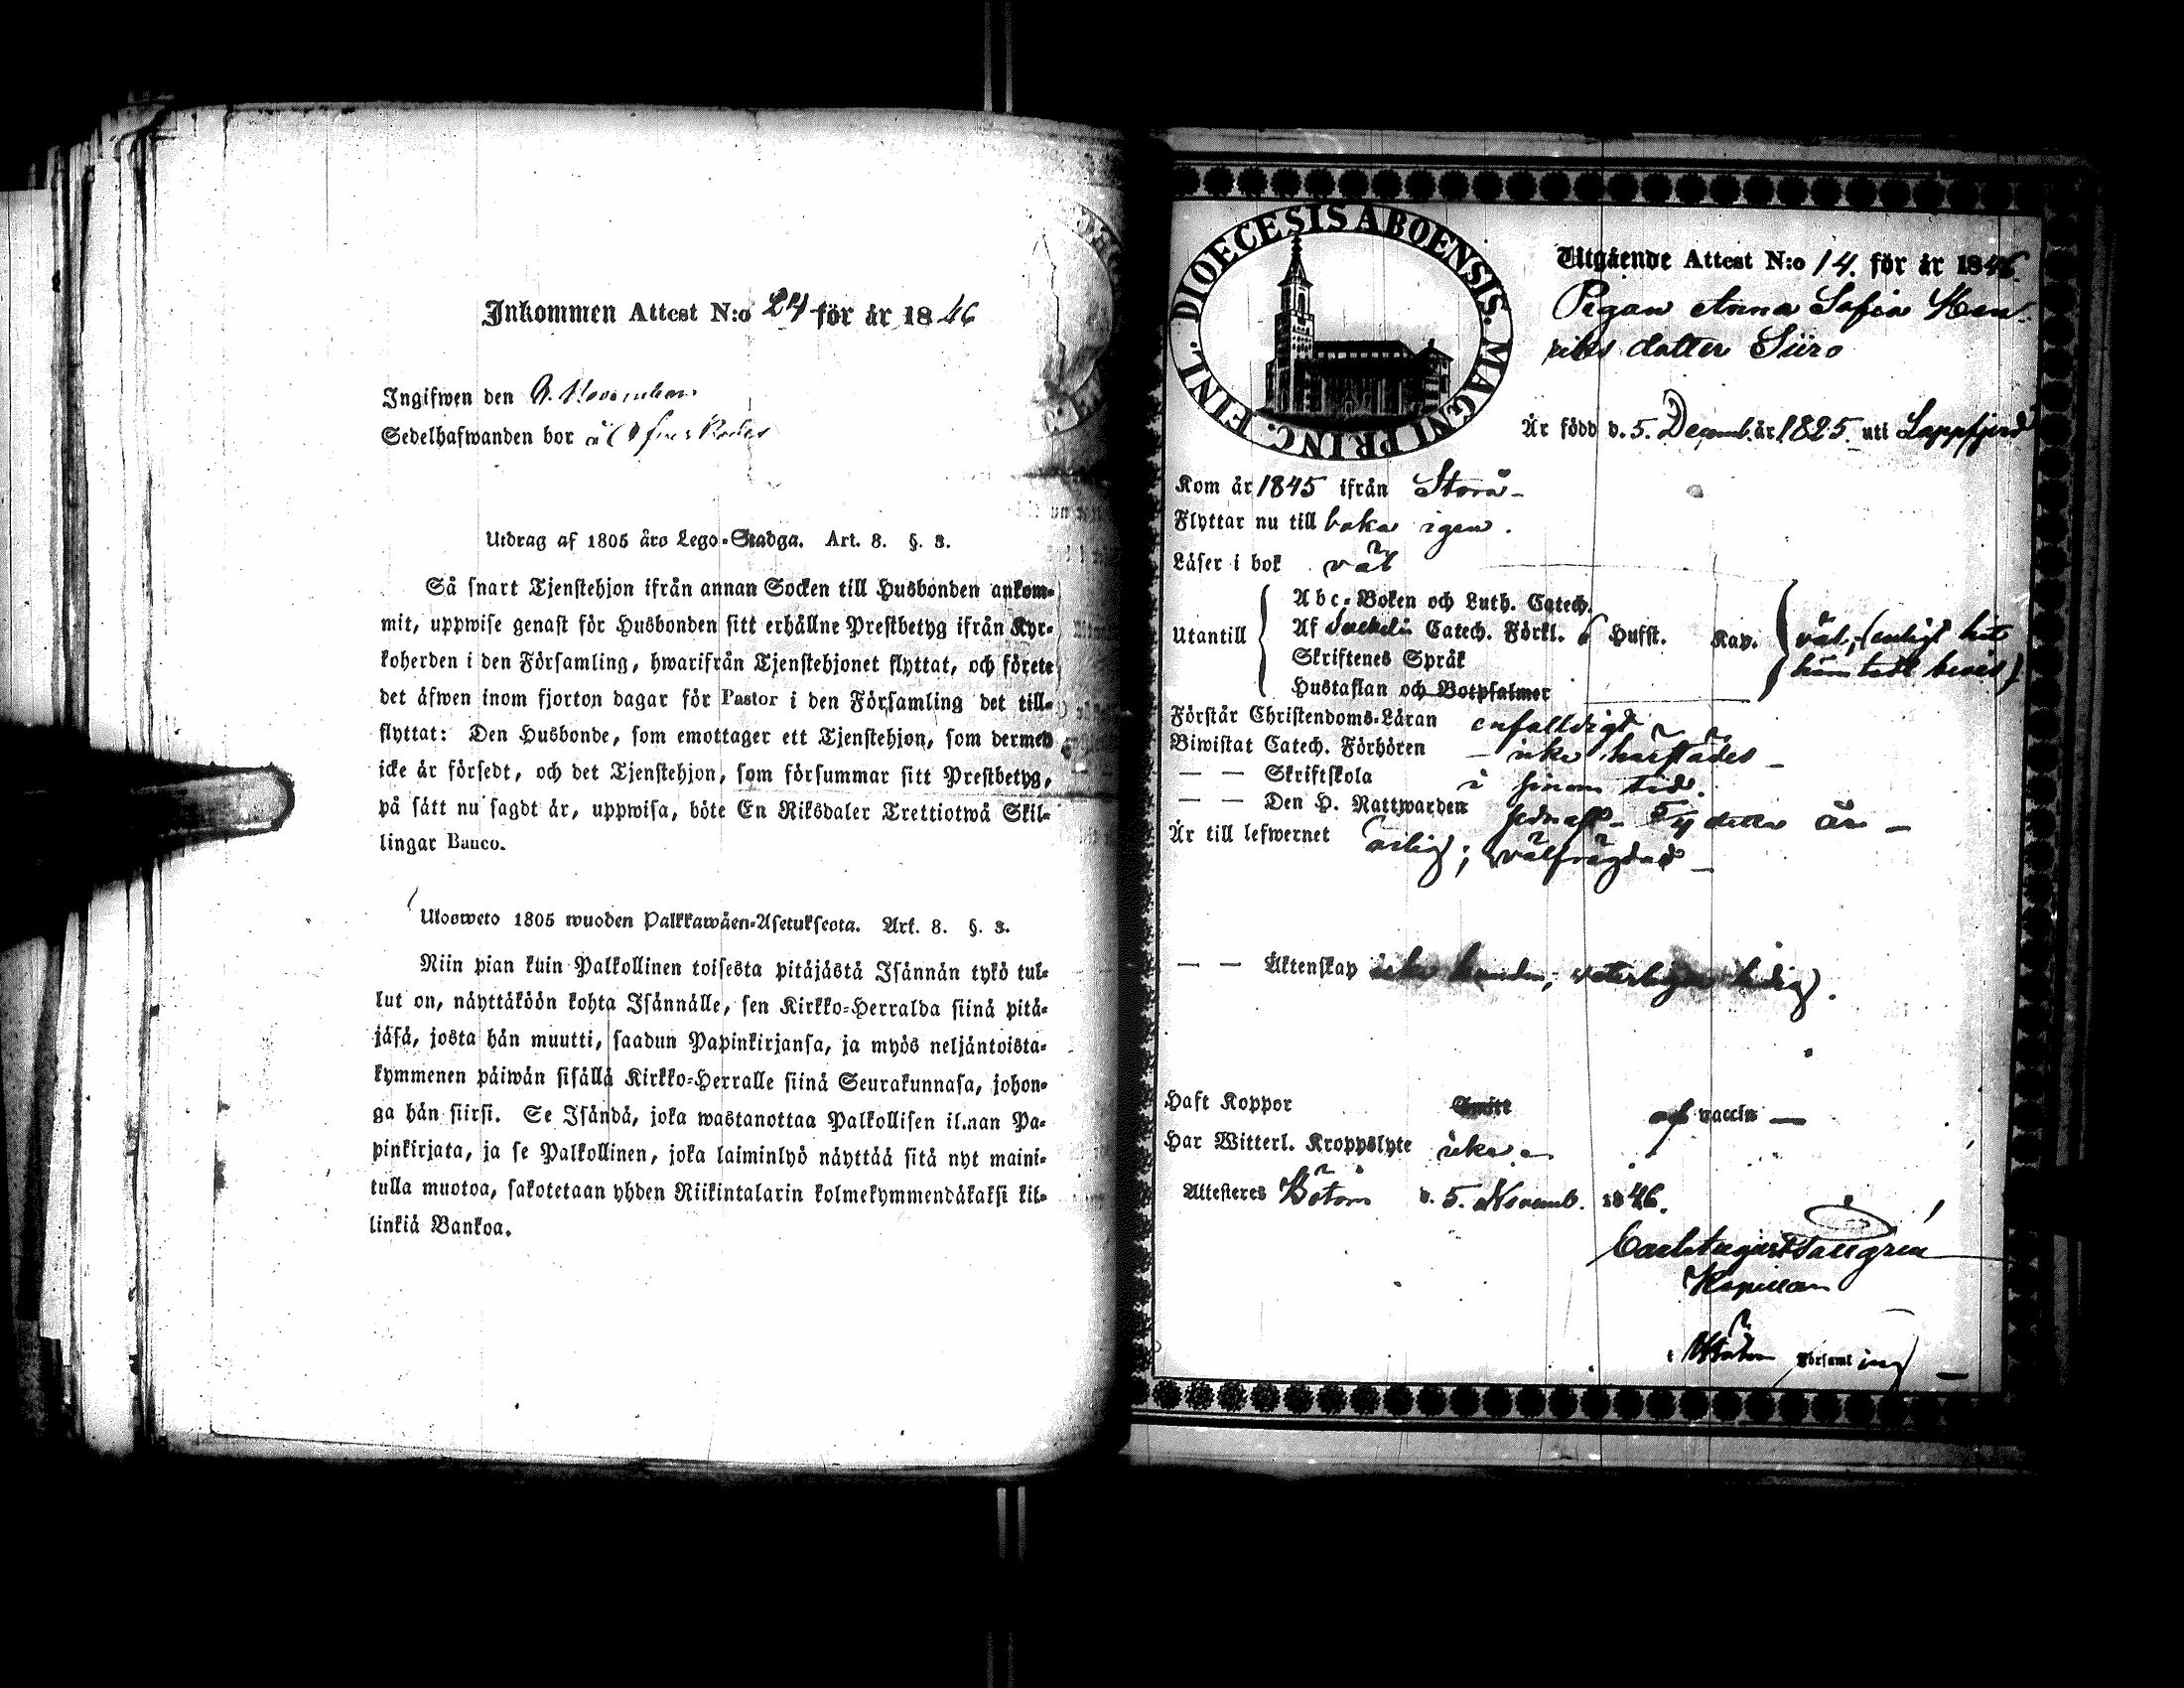 Inkommen Attest N:o 24 för år 1846
Ingifwen den 8. November
Sedelhafwanden bor å
Utdrag af 1805 års Lego-Stadga. Art. 8. §. 3.
Så snart Tjenstehjon ifrån annan Socken till Husbonden ankom-
mit, uppwise genast för Husbonden sitt erhållne Prestbetyg ifrån Kyr-
koherden i den Församling, hwarifrån Tjenstehjonet flyttat, och förete
det äfwen inom fjorton dagar för Pastor i den Församling det till-
flyttat: Den Husbonde, som emottager ett Tjenstehjon, som dermed
icke är försedt, och det Tjenstehjon, som försummar sitt Prestbetyg,
på sätt nu sagdt är, uppwisa, böte En Riksdaler Trettiotwå Skil-
lingar Banco.
Ulosweto 1805 wuoden Palkkawäen-Asetuksesta. Art. 8. §. 3.
Niin pian kuin Palkollinen toisesta pitäjästä Isännän tykö tul-
lut on, näyttäköön kohta Isännälle, sen Kirkko-Herralda siinä pitä-
jäsä, josta hän muutti, saadun Papinkirjansa, ja myös neljäntoista-
kymmenen päiwän sisällä Kirkko-Herralle siinä Seurakunnasa, johon-
ga hän siirsi. Se Isändä, joka wastanottaa Palkollisen ilman Pa-
pinkirjata, ja se Palkollinen, joka laiminlyö näyttää sitä nyt maini-
tulla muotoa, sakotetaan yhden Riikintalarin kolmekymmendäkaksi kil-
linkiä Bankoa.
DIOECESIS ABOENSIS. MAGNI PRINC. FINL.
Utgående Attest N:o 14. för år 1846.
Pigan Anna Sofia Hen-
riks dotter Siiro
Är född d. 5. Decemb. år 1825. uti Lappfjerd
Kom år 1845 ifrån Storå -
Flyttar nu till baka igen.
Läser i bok väl
Utantill
Abc-Boken och Luth. Catech.
Af Svebelii Catech. Förkl. 6 Hufst. Kap.
Skriftenes Språk
Hustaflan och Botpsalmer
väl, (enligt hit
hämtadt bevis)
Förstår Christendoms-Läran enfalldigt
Biwistat Catech. Förhören - icke härstädes -
— — Skriftskola i sinom tid.
— — Den H. Nattwarden sednast - 5/4 detta år -
Är till lefwernet ärlig; välfrägdad -
— — Äktenskap icke bunden, veterligen ledig.
Haft Koppor Smitt af vaccin —
Har Witterl. Kroppslyte icke -
Attesteras Bötom d. 5. Novemb. 1846.
Kapellan
i Bötom Församling -